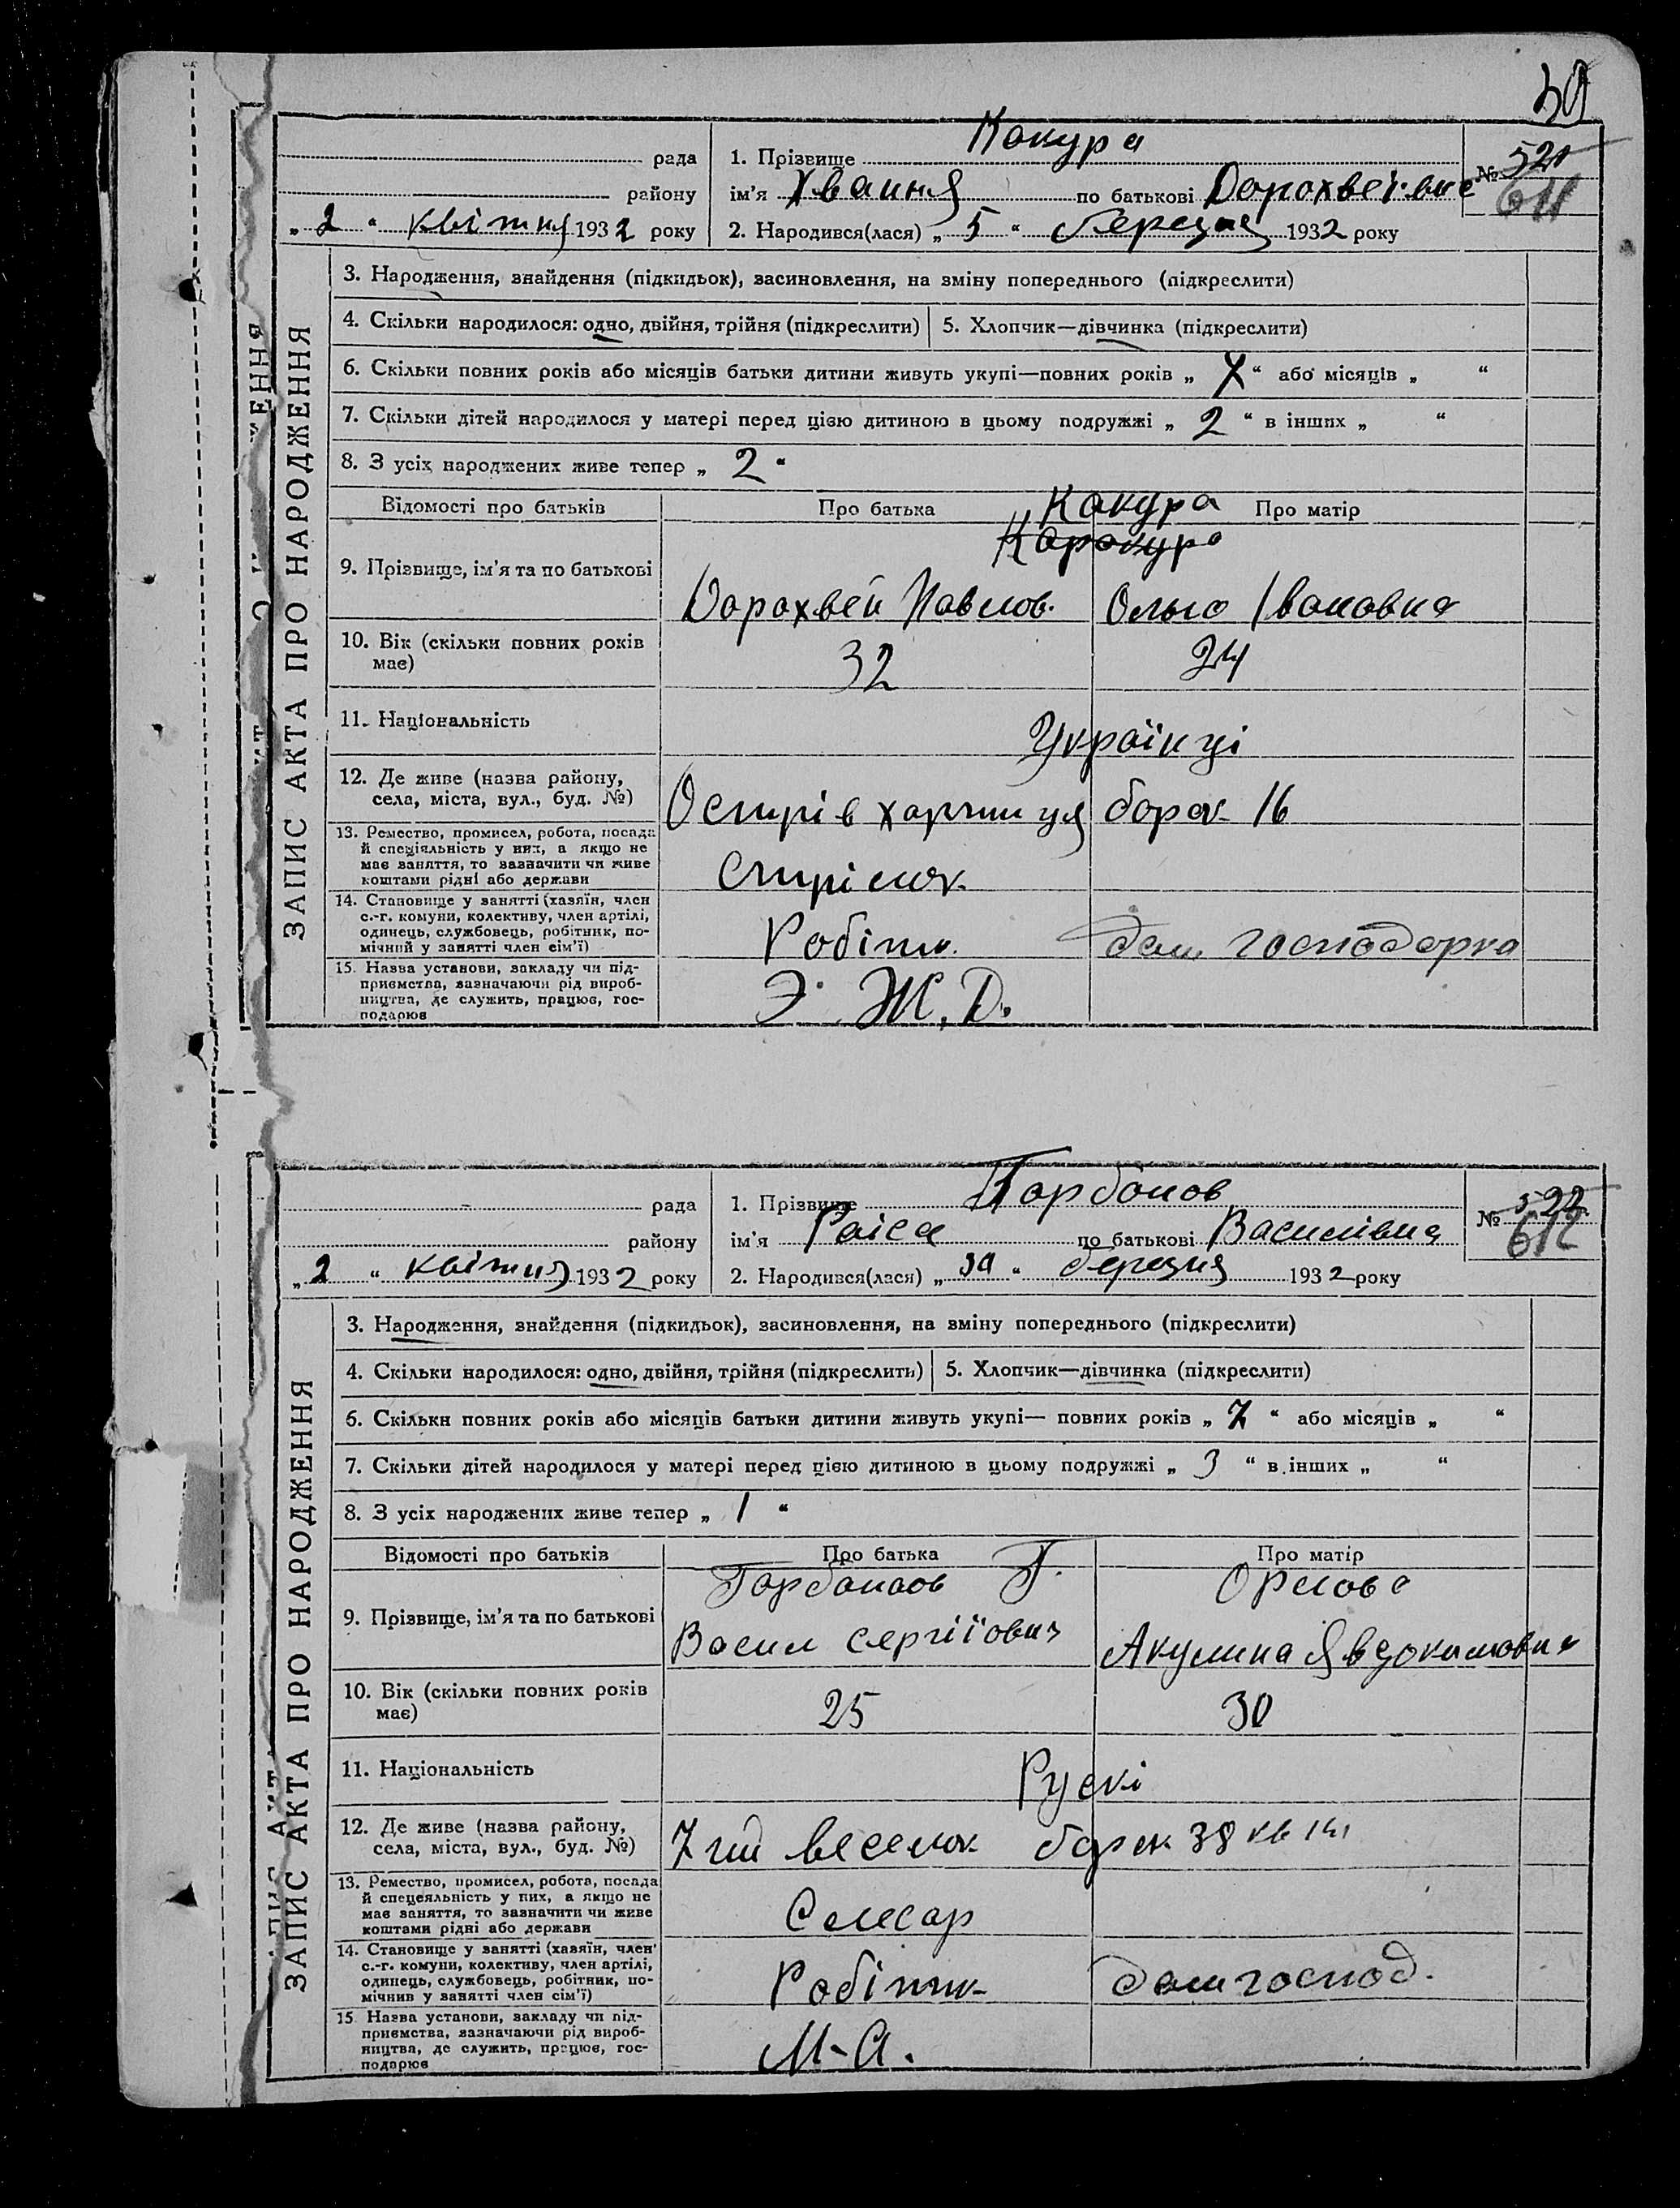 30
рада
1. Прізвище Кокура
№ 521
611
району
ім'я Хвання по батькові Дорохвеівне
„ 2 “ квітня 1932 року
2. Народився(лася) „ 5 “ березня 1932 року
ЗАПИС АКТА ПРО НАРОДЖЕННЯ
3. Народження, знайдення (підкидьок), засиновлення, на зміну попереднього (підкреслити)
4. Скільки народилося: одно, двійня, трійня (підкреслити)
5. Хлопчик—дівчинка (підкреслити)
6. Скільки повних років або місяців батьки дитини живуть укупі—повних років „ “ або місяців „ “
7. Скільки дітей народилося у матері перед цією дитиною в цьому подружжі „ 2 “ в інших „ “
8. З усіх народжених живе тепер „ 2 “
Відомості про батьків
Про батька
Про матір
Кокура
Корокура
9. Прізвище, ім'я та по батькові
Дорохвей Павлов.
Ольго Івановна
10. Вік (скільки повних років має)
32
24
11. Національність
Українці
12. Де живе (назва району, села, міста, вул., буд. №)
Острів харчиця борак 16
13. Ремество, промисел, робота, посада й спеціяльність у них, а якщо не має заняття, то зазначити чи живе коштами рідні або держави
Стрілок
14. Становище у занятті (хазяїн, член с.-г. комуни, колективу, член артілі, одинець, службовець, робітник, помічний у занятті член сім'ї)
Робітн.
дом господорка
15. Назва установи, закладу чи підприємства, зазначаючи рід виробництва, де служить, працює, господарює
Э. Ж. Д.
рада
1. Прізвище Горбонов
№ 522
612
району
ім'я Раіса по батькові Василівна
„ 2 “ квітня 1932 року
2. Народився(лася) „ 30 “ березня 1932 року
ЗАПИС АКТА ПРО НАРОДЖЕННЯ
3. Народження, знайдення (підкидьок), засиновлення, на зміну попереднього (підкреслити)
4. Скільки народилося: одно, двійня, трійня (підкреслить)
5. Хлопчик—дівчинка (підкреслити)
6. Скільки повних років або місяців батьки дитини живуть укупі— повних років „ 7 “ або місяців „ “
7. Скільки дітей народилося у матері перед цією дитиною в цьому подружжі „ 3 “ в інших „ “
8. З усіх народжених живе тепер „ 1 “
Відомості про батьків
Про батька
Про матір
9. Прізвище, ім'я та по батькові
Горбонов Г.
Орлова
Васил Сергіїович
Акулина Явдокимовна
10. Вік (скільки повних років має)
25
30
11. Національність
Рускі
12. Де живе (назва району, села, міста, вул., буд. №)
7 веселок борак 38 кв 14
13. Ремество, промисел, робота, посада й спецеяльність у них, а якщо не має заняття, то зазначити чи живе коштами рідні або держави
Слесар
14. Становище у занятті (хазяїн, член с.-г. комуни, колективу, член артілі, одинець, службовець, робітник, помічнив у занятті член сім'ї)
Робітник
дом господ.
15 Назва установи, закладу чи підприємства, зазначаючи рід виробництва, де служить, працює, господарює
М-А.